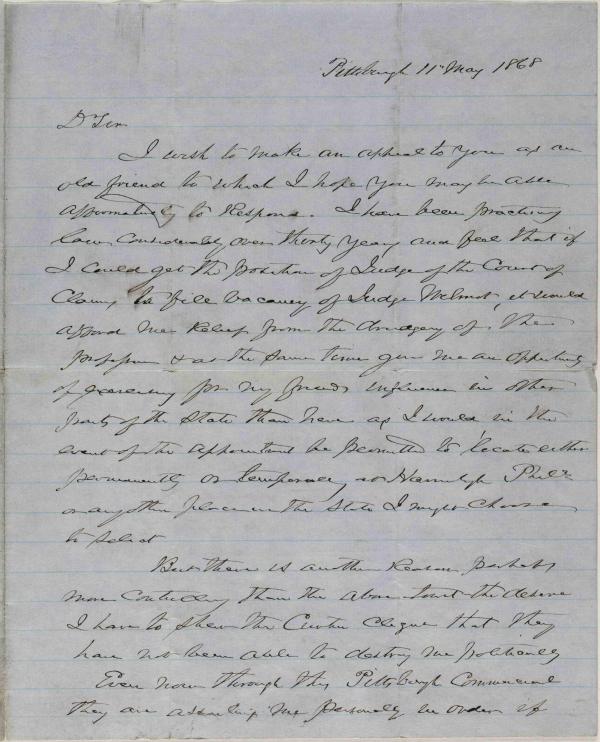 Pittsburgh 11 May 1868
Dr Sir
I wish to make an appeal to you as an
old friend to which I hope you may be able
affirmatively to Respond. I have been practicing
law considerably over thirty years and feel that if
I could get the position of Judge of the Court of
Claims, to fill vacancy of Judge Wilmot, it would
afford me Relief from the drudgery of the
profession & at the same time give me an opportunity
of exercising for my friends influence in other
parts of the State than here as I would in the
event of the appointment be permitted to locate either
permanently or temporarily at Harrisburgh Phila
or any other place in the State I might choose
to select
But there is another Reason perhaps
more controlling than the above the desire
I have to shew the Curtin Clique that they
have not been able to destroy me politically
Even now through the Pittsburgh Commercial
they are assailing me personally in order if